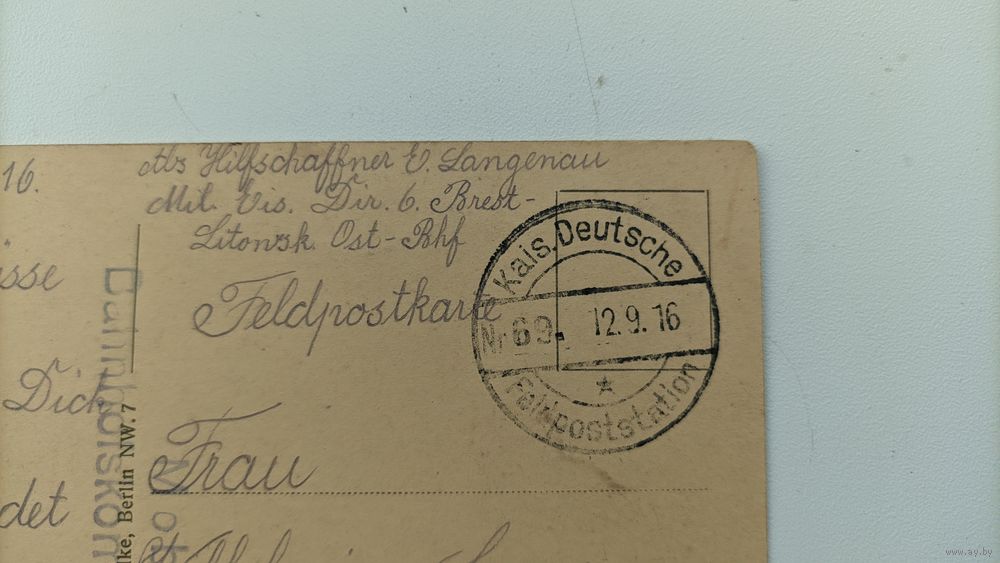 16.
Abs Hilfschaffner E. Langenau
Mil. Eis. Dir. 6. Brest-
Litowsk Ost-Bhf
Feldpostkarte
Kais. Deutsche
Nr 69. 12.9.16
Feldpoststation
sse
Dich
det
Frau
ke, Berlin NW. 7
www.ay.by